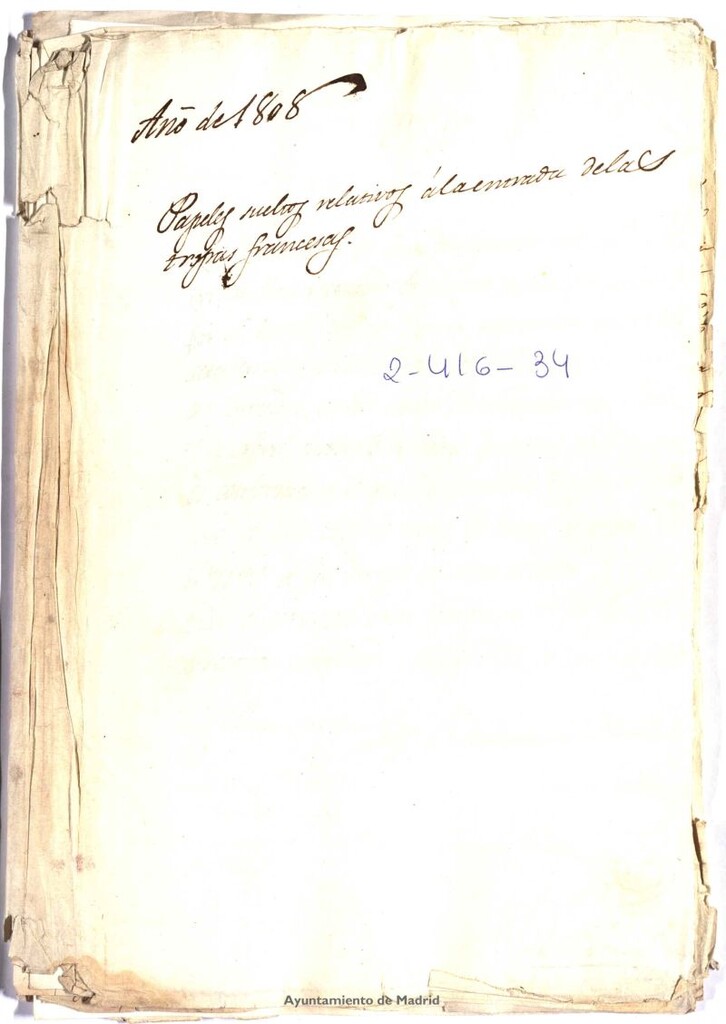 Año de 1808
Papeles sueltos relativos á la entrada de las
tropas francesas.
2-416-34
Ayuntamiento de Madrid